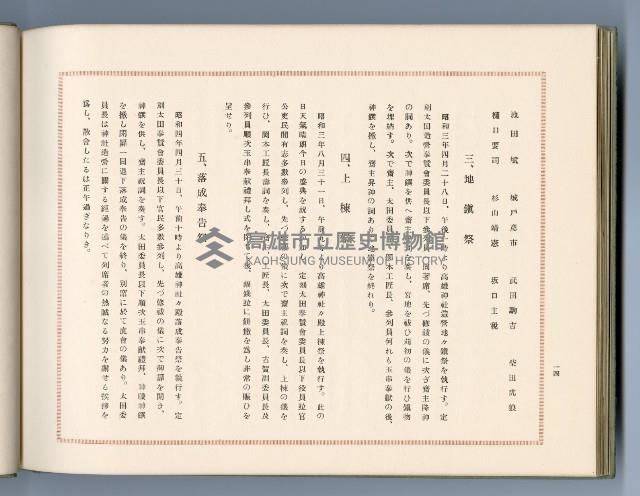 池田斌 城戸彦市 武田駒吉 柴田虎狼
樋口要司 杉山靖憲 坂口主税
三、地鎭祭
昭和三年四月二十八日、午後二時より高雄神社造營地々鎭祭を執行す。定
刻太田造營奉賛會委員長以下參列員一同著席、先づ修祓の儀に次ぎ齋主降神
の詞あり。次で神饌を供へ齋主祝詞を奏し、宮地を祓ひ苅初の儀を行ひ鎭物
を埋納す。次で齋主、太田委員長、岡本工匠長、參列員何れも玉串奉献の後、
神饌を撤し、齋主昇神の詞あり地鎭祭を終れり。
四、上棟祭
昭和三年八月三十一日、午前十時より高雄神社々殿上棟祭を執行す。此の
日天氣晴朗今日の盛典を祝するが如し、定刻太田奉賛會委員長以下役員竝官
公吏民間有志多數參列し、先づ修祓の儀に次で齋主祝詞を奏し、上棟の儀を
行ひ、岡本工匠長壽詞を奏し、齋主、工匠長、太田委員長、古賀副委員長及
參列員順次玉串奉献禮拜し式を閉て後、撒錢竝に餅撒を爲し非常の賑ひを
呈せり。
五、落成奉告祭
昭和四年四月三十日、午前十時より高雄神社々殿落成奉告祭を執行す。定
刻太田奉賛會委員長以下官民多數參列し、先づ修祓の儀に次で御扉を開き、
神饌を供し、齋主祝詞を奏す。太田委員長以下順次玉串奉献禮拜、神職神饌
を撤し閉扉一同退下落成奉告の儀を終り、別席に於て直會の儀あり。太田委
員長は神社造營に關する經過を述べて列席者の熱誠なる努力を謝せる挨拶を
爲し、散會したるは正午過ぎなりき。
一四
高雄市立歷史博物館
KAOHSIUNG MUSEUM OF HISTORY